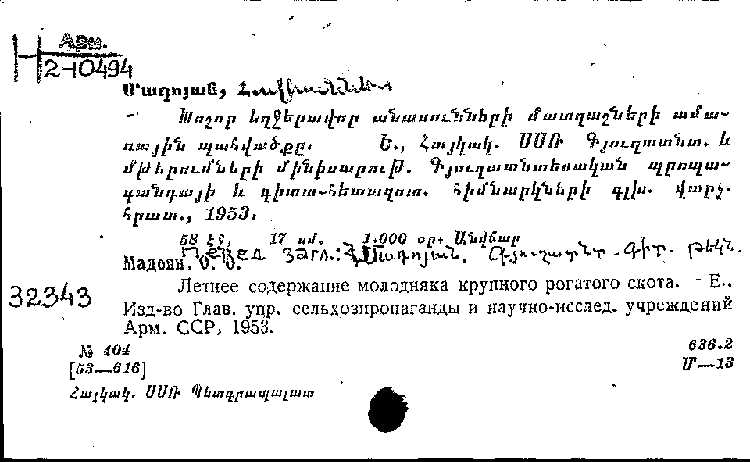 Арм.
2-10494
Մադոյան, Հովհաննես
Խոշոր եղջերավոր անասունների մատղաշների ամա-
ռային պահվածքը. Ե., Հայկակ. ՍՍՌ Գյուղտնտ. և
մթերումների մինիստրութ. Գյուղատնտեսական պրոպա-
գանդայի և գիտա-հետազոտ. հիմնարկների գլխ. վարչ.
հրատ., 1953.
58 էջ, 17 սմ. 1.000 օր. Անվճար
ПЕРЕД ЗАГЛ.: Մադոյան. Գյուղատնտ. գիտ. թեկն.
Мадоян. О. О.
Летнее содержание молодняка крупного рогатого скота. - Е.,
32343
Изд-во Глав. упр. сельхозпропаганды и научно-исслед. учреждений
Арм. ССР, 1953.
№ 404
636.2
[53—616]
Մ—13
Հայկակ. ՍՍՌ Պետգրապալատ